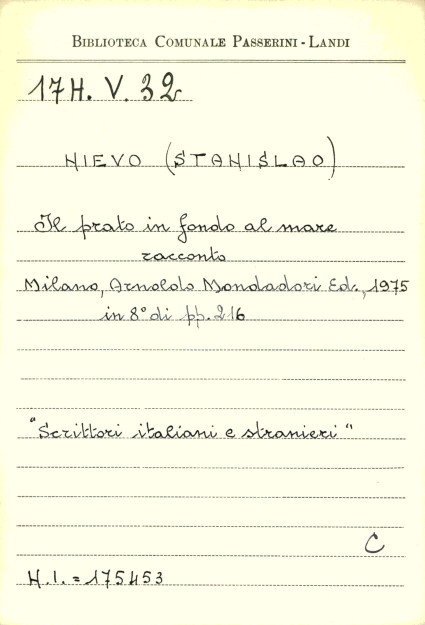 BIBLIOTECA COMUNALE PASSERINI - LANDI
17H. V. 32
NIEVO (STANISLAO)
Il prato in fondo al mare
racconto
Milano, Arnoldo Mondadori Ed., 1975
in 8° di pp. 216
"Scrittori italiani e stranieri"
C
N.I. = 175453